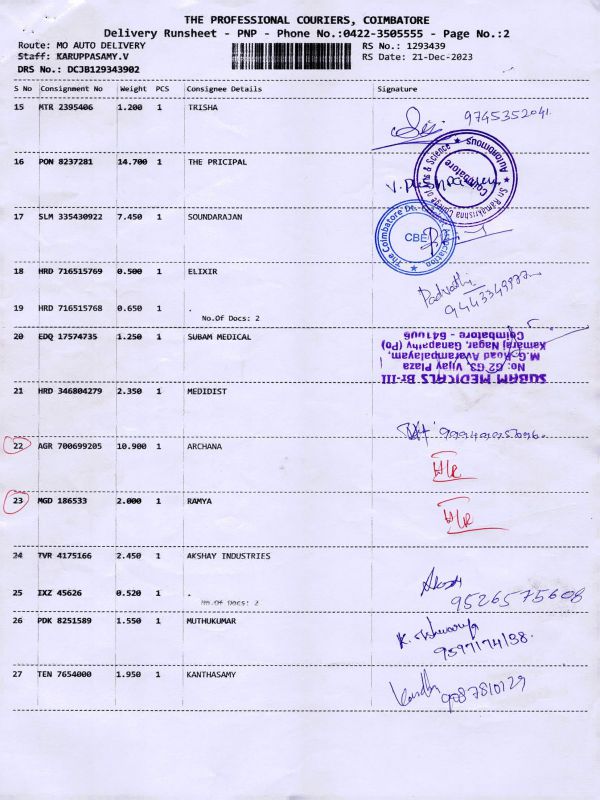 THE PROFESSIONAL COURIERS, COIMBATORE
Delivery Runsheet - PNP - Phone No.:0422-3505555 - Page No.:2
Route: MO AUTO DELIVERY RS No.: 1293439
Staff: KARUPPASAMY.V RS Date: 21-Dec-2023
DRS No.: DCJB129343902
S No Consignment No Weight PCS Consignee Details Signature
15 MTR 2395406 1.200 1 TRISHA 9745352041
16 PON 8237281 14.700 1 THE PRICIPAL
Sri Ramakrishna College of Arts & Science
Autonomous
Coimbatore
17 SLM 335430922 7.450 1 SOUNDARAJAN
CBE
18 HRD 716515769 0.500 1 ELIXIR
Padvathi
19 HRD 716515768 0.650 1 .
No.Of Docs: 2
20 EDQ 17574735 1.250 1 SUBAM MEDICAL
SUBAM MEDICALS Br-III
No: G2 G3, Vijay Plaza
M.G. Road Avarampalayam,
Kamaraj Nagar, Ganapathy (Po)
Coimbatore - 641006
21 HRD 346804279 2.350 1 MEDIDIST
22 AGR 700699205 10.900 1 ARCHANA
23 MGD 186533 2.000 1 RAMYA
24 TVR 4175166 2.450 1 AKSHAY INDUSTRIES
25 IXZ 45626 0.520 1 . 9526575608
No.Of Docs: 2
26 PDK 8251589 1.550 1 MUTHUKUMAR
9597174138.
27 TEN 7654000 1.950 1 KANTHASAMY
9087810129